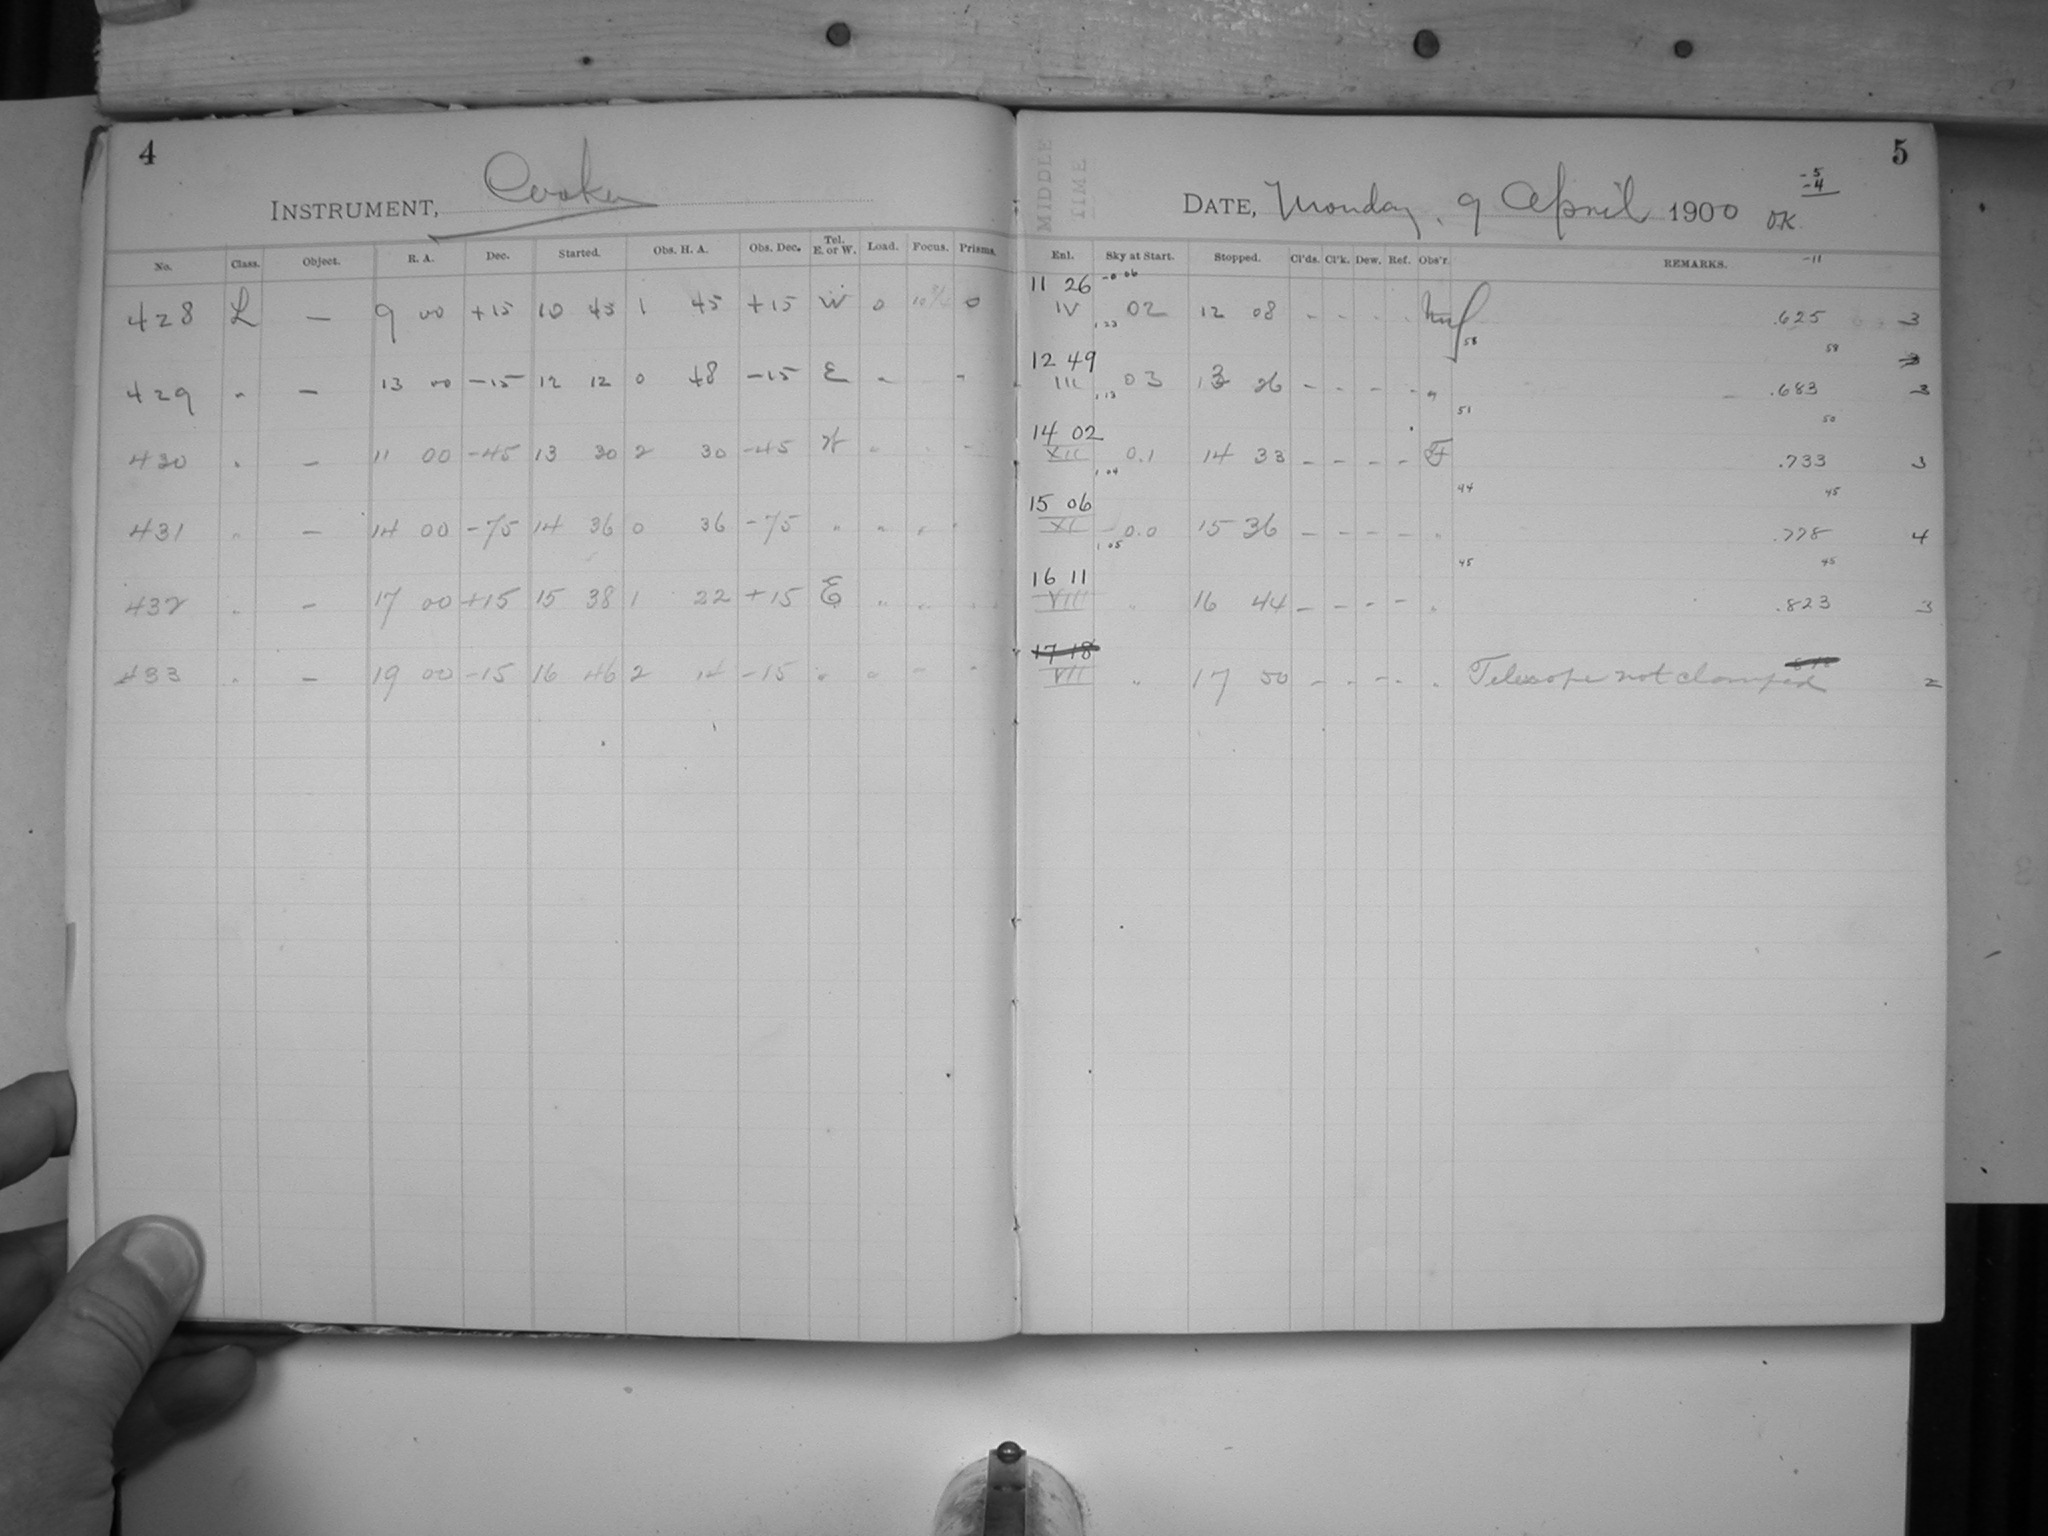 4
INSTRUMENT, Cooke
No. Class. Object. R. A. Dec. Started. Obs. H. A. Obs. Dec. Tel. E. or W. Load. Focus. Prisms.
428 L — 9 00 +15 10 43 1 45 +15 W 0 0
429 " — 13 00 -15 12 12 0 48 -15 E " "
430 " — 11 00 -45 13 30 2 30 -45 W " " "
431 " — 14 00 -75 14 36 0 36 -75 " " " "
432 " — 17 00 +15 15 38 1 22 +15 E " " "
433 " — 19 00 -15 16 46 2 14 -15 " " " "
MIDDLE TIME
5
DATE, Monday, 9 April 1900 O.K.
-5
-4
Enl. Sky at Start. Stopped. Cl'ds. Cl'k. Dew. Ref. Obs'r. REMARKS. -11
11 26 -0 06
IV 02 12 08 - - - - .625 3
1 23 58 58
12 49 3
III 03 13 26 - - - - " .683 3
1 13 51 50
14 02
XII 0.1 14 33 - - - - F .733 3
1 04 44 45
15 06
XI 0.0 15 36 - - - - " .778 4
1 05 45 45
16 11
VIII " 16 44 - - - - " .823 3
17 18
VII " 17 50 - - - - " Telescope not clamped 2